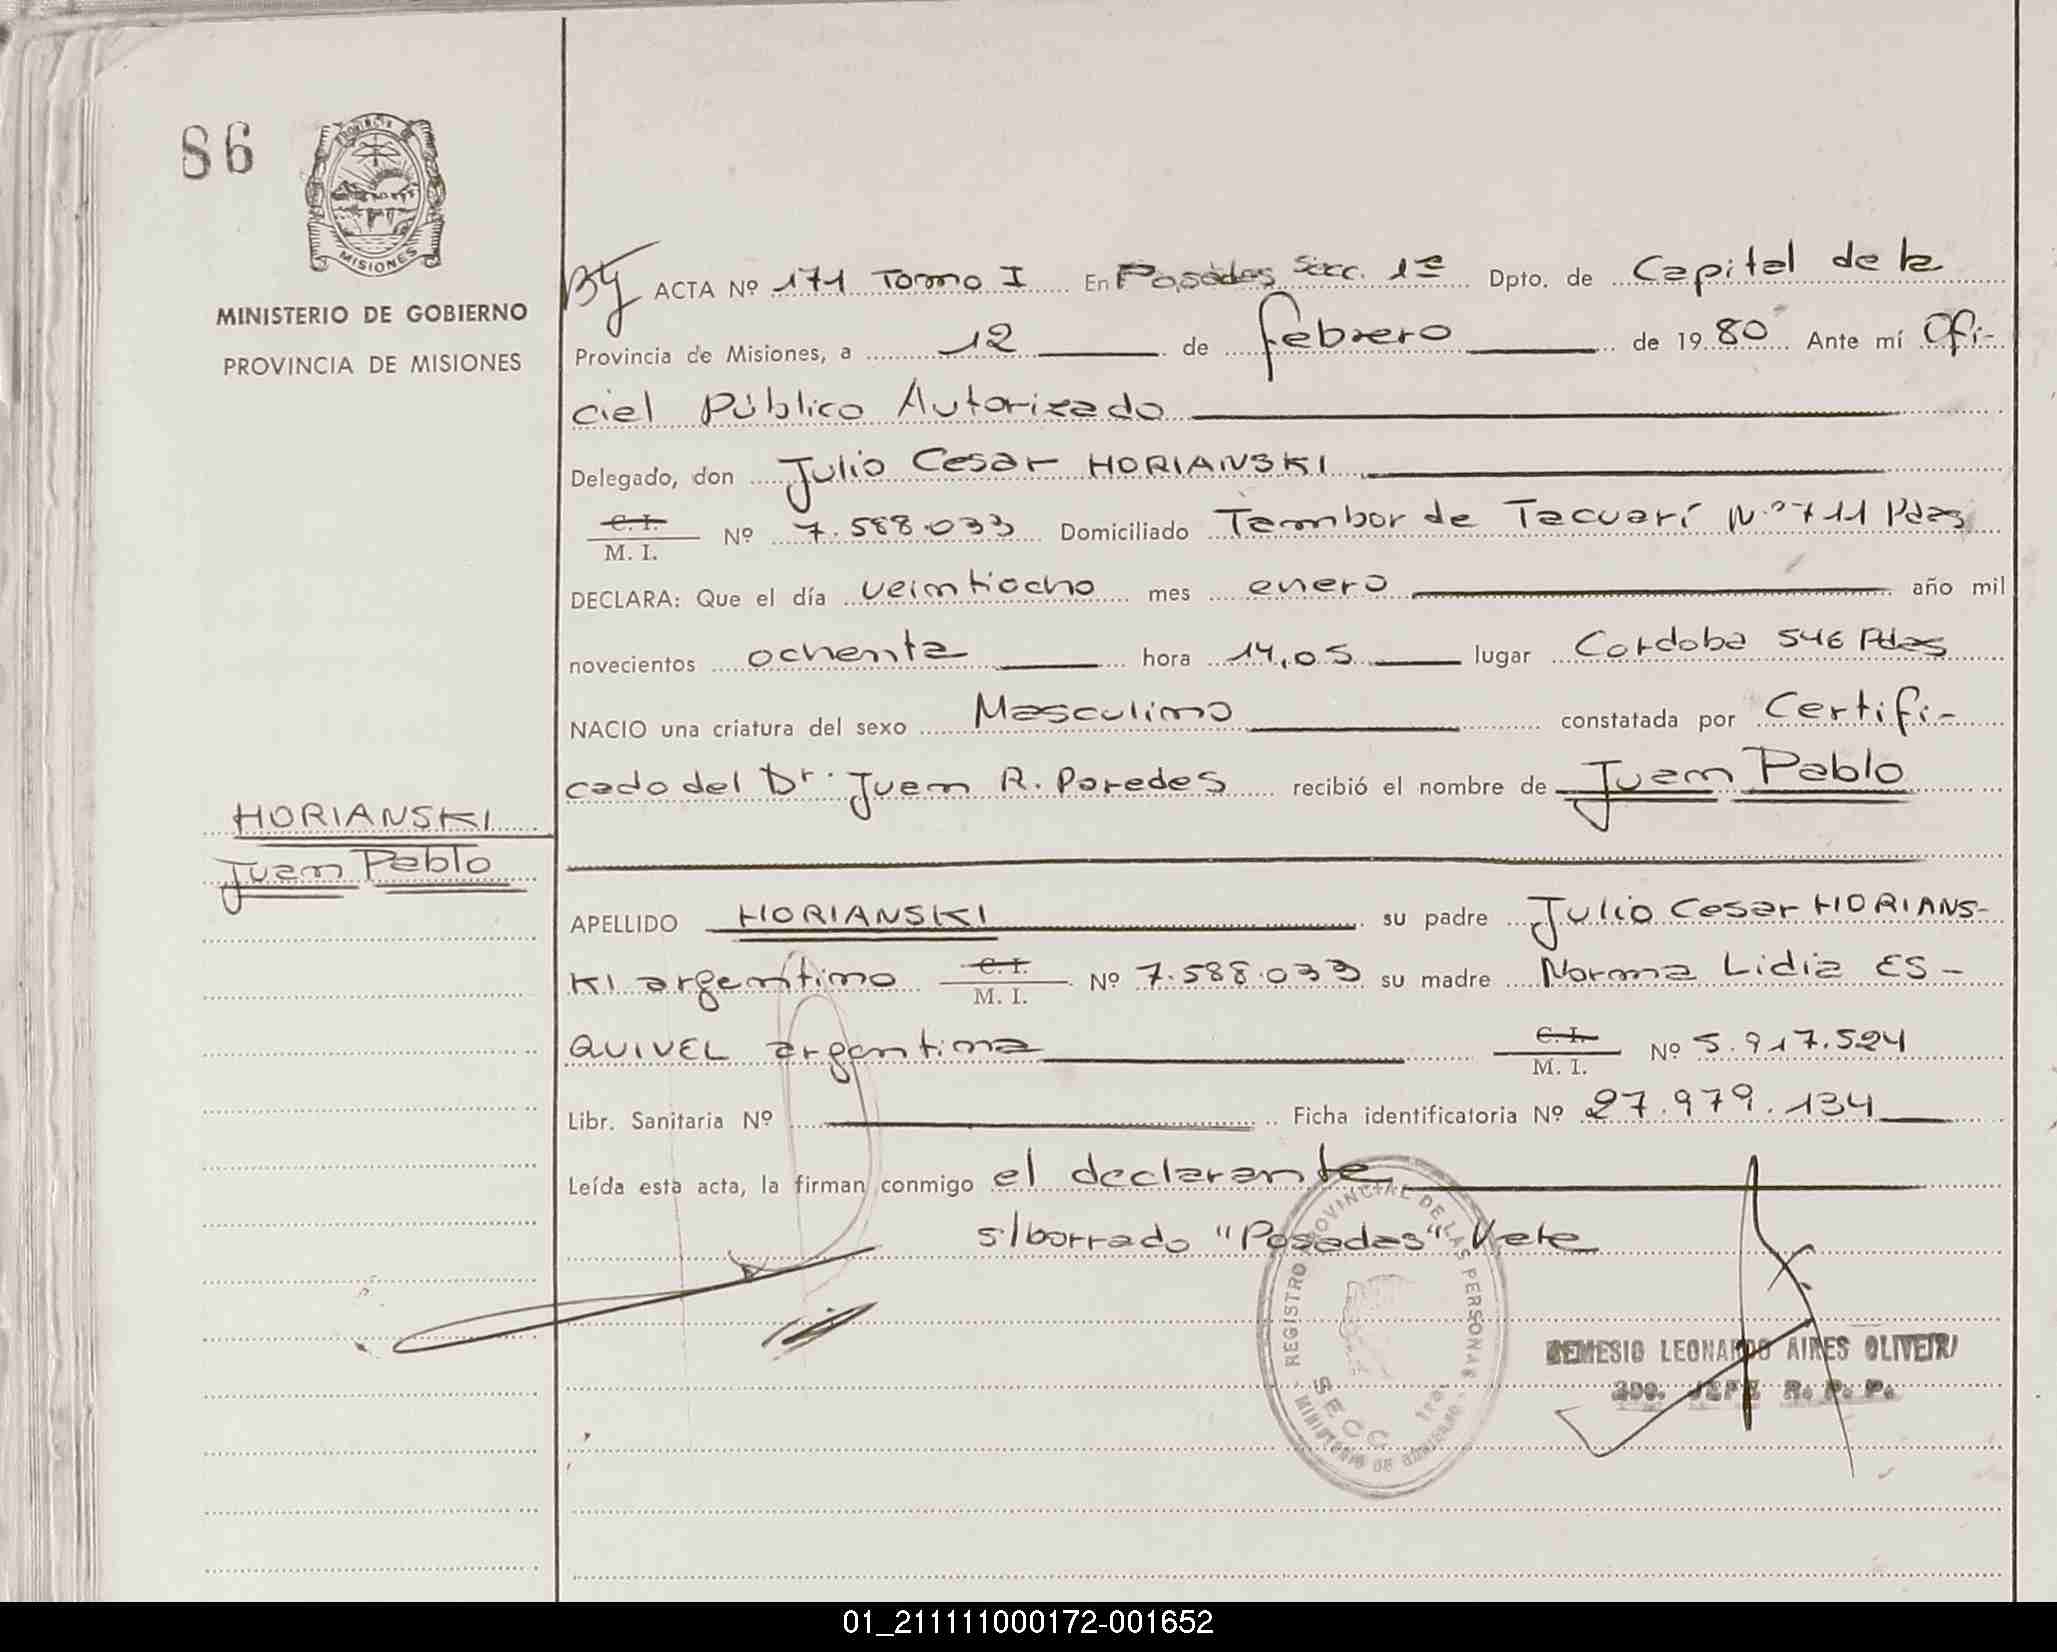 86
PROVINCIA DE
MISIONES
MINISTERIO DE GOBIERNO
PROVINCIA DE MISIONES
HORIANSKI
Juan Pablo
ACTA Nº 171 Tomo I En Posadas Secc. 1ª Dpto. de Capital de la
Provincia de Misiones, a 12 de febrero de 1980 Ante mí Ofi-
cial Público Autorizado
Delegado, don Julio Cesar HORIANSKI
C. I. M. I. Nº 7.588.033 Domiciliado Tambor de Tacuarí Nº 711 Pdas
DECLARA: Que el día veintiocho mes enero año mil
novecientos ochenta hora 14,05 lugar Cordoba 546 Pdas
NACIO una criatura del sexo Masculino constatada por Certifi-
cado del Dr. Juan R. Paredes recibió el nombre de Juan Pablo
APELLIDO HORIANSKI su padre Julio Cesar HORIANS-
KI argentino C. I. M. I. Nº 7.588.033 su madre Norma Lidia ES-
QUIVEL argentina C. I. M. I. Nº 5.917.524
Libr. Sanitaria Nº Ficha identificatoria Nº 27.979.134
Leída esta acta, la firman conmigo el declarante
s/borrado "Posadas" Vale
REGISTRO PROVINCIAL DE LAS PERSONAS
SECC 1ra.
MINISTERIO DE GOBIERNO
LEONARDO AIRES OLIVEIRA
2DO. JEFE R. P. P.
01_211111000172-001652